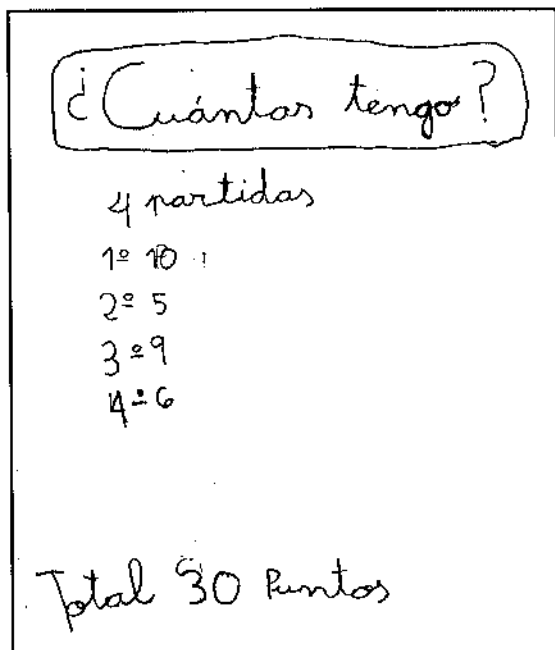 ¿Cuántos tengo?
4 partidas
1º 10
2º 5
3º 9
4º 6
Total 30 Puntos